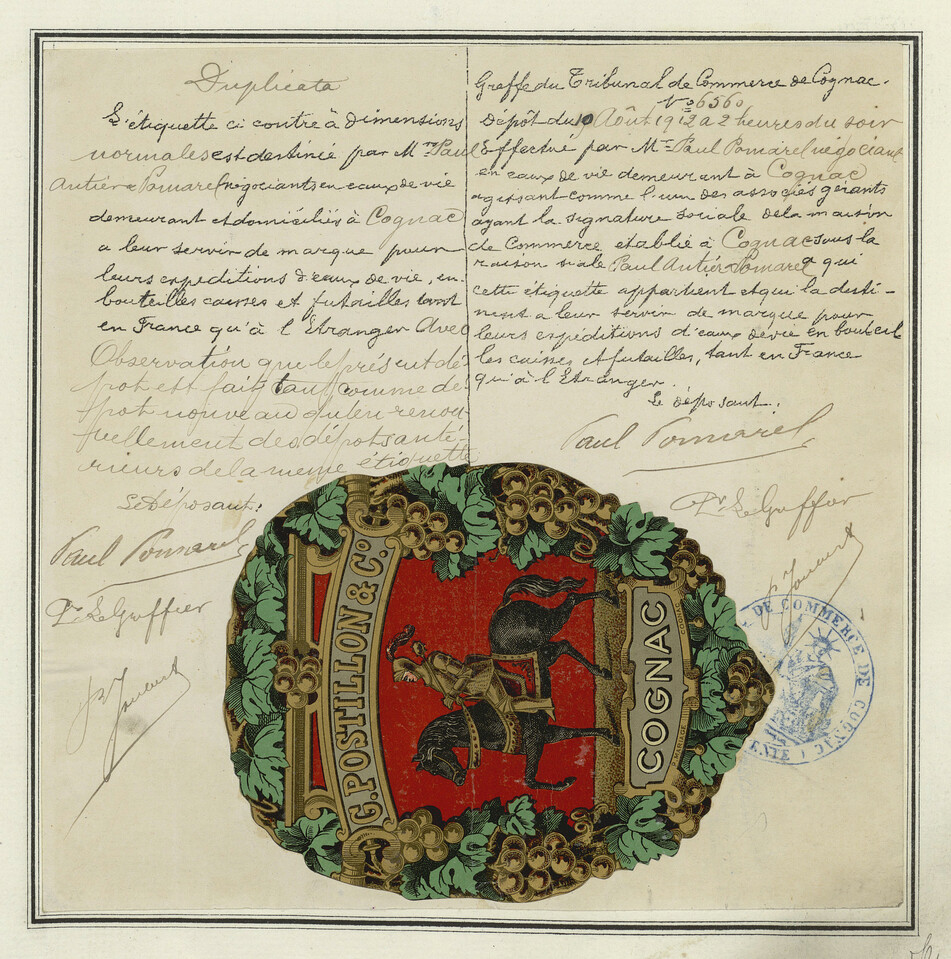 Duplicata
L'étiquette ci contre à dimensions
normales est destinié par Mrs Paul
Antier & Pomarel négociants en eaux de vie
demeurant et domiciliés à Cognac
a leur servir de marque pour
leurs expéditions d'eaux de vie, en
bouteilles caisses et futailles tant
en France qu'à l'Etranger Avec
Observation que le présent dé-
pot est fait tant comme dé-
pot nouveau qu'en renou-
vellement des dépots anté-
rieurs de la meme étiquette
Le Déposant:
Paul Pomarel
Pr. Le Greffier
Greffe du Tribunal de Commerce de Cognac.
No 6560
Dépôt du 10 Août 1912 a 2 heures du soir
Effectué par Mr Paul Pomarel négociant
en eaux de vie demeurant à Cognac
agissant comme l'un des associés gérants
ayant la signature sociale de la maison
de Commerce etablié à Cognac sous la
raison siale Paul Antier & Pomarel a qui
cette étiquette appartient et qui la desti-
nent a leur servir de marque pour
leurs expéditions d'eaux de vie en bouteil
les caisses et futailles, tant en France
qu'à l'Etranger.
Le déposant:
Paul Pomarel
Pr. Le Greffier
G. POSTILLON & Co.
COGNAC
DE COMMERCE DE COGNAC